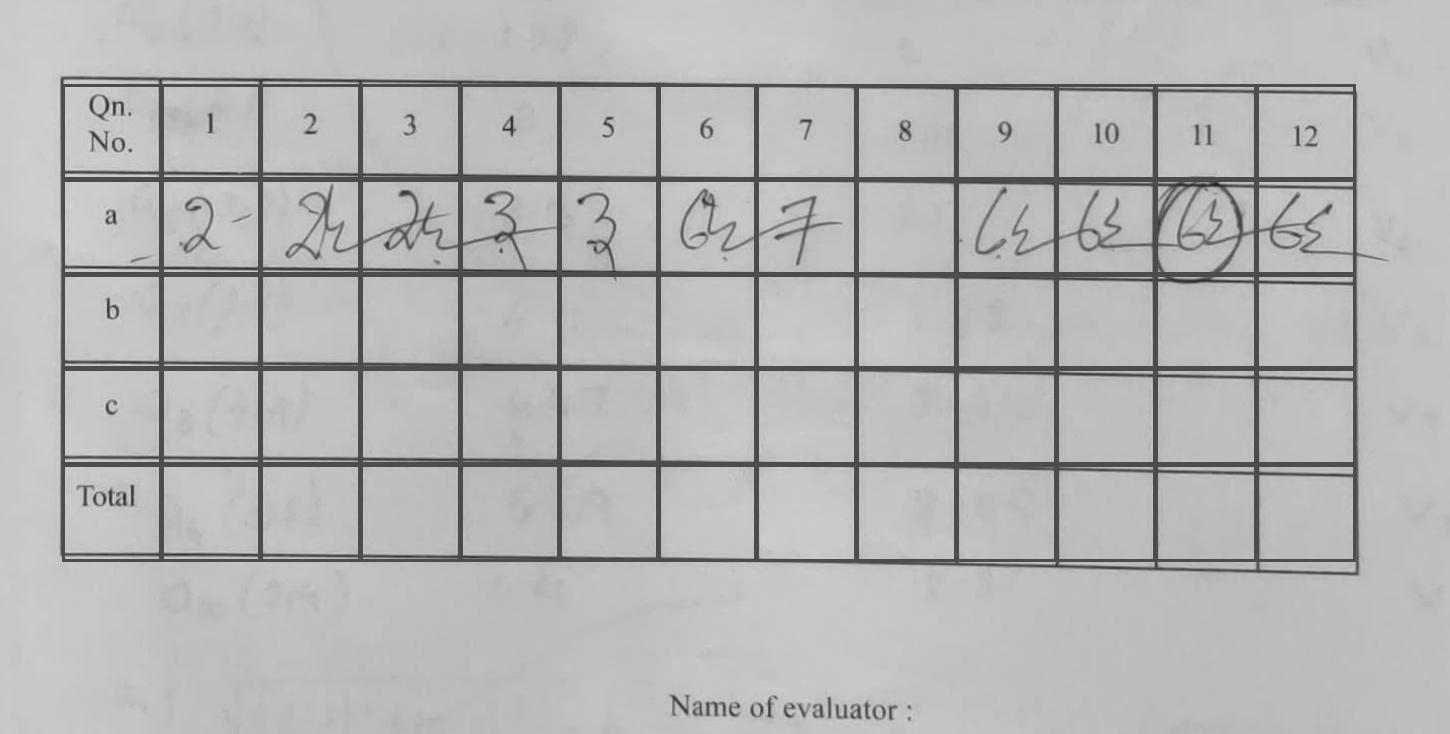 Qn. No. 1 2 3 4 5 6 7 8 9 10 11 12
a 2 2½ 2½ 3 3 6½ 7 6½ 6½ 6½ 6½
b
c
Total
Name of evaluator :